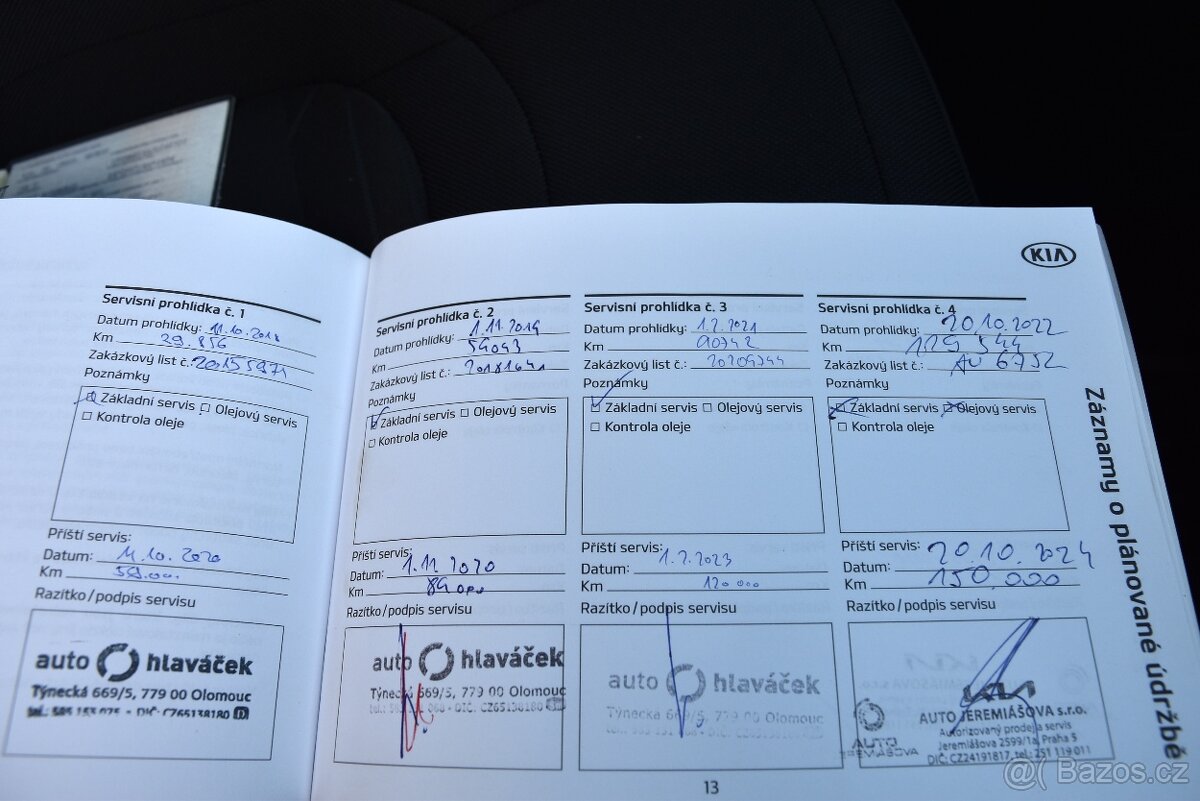 KIA
Servisní prohlídka č. 1
Datum prohlídky: 11.10.2018
Km 29.856
Zakázkový list č.: 20155971
Poznámky
Základní servis Olejový servis
Kontrola oleje
Příští servis:
Datum: 11.10.2020
Km 59.000
Razítko/podpis servisu
auto hlaváček
Týnecká 669/5, 779 00 Olomouc
DIČ: CZ65138180
Servisní prohlídka č. 2
Datum prohlídky: 1.11.2019
Km 59093
Zakázkový list č.: 20181641
Poznámky
Základní servis Olejový servis
Kontrola oleje
Příští servis:
Datum: 1.11.2020
Km 89000
Razítko/podpis servisu
auto hlaváček
Týnecká 669/5, 779 00 Olomouc
DIČ: CZ65138180
Servisní prohlídka č. 3
Datum prohlídky: 1.2.2021
Km 90742
Zakázkový list č.: 20209744
Poznámky
Základní servis Olejový servis
Kontrola oleje
Příští servis:
Datum: 1.2.2023
Km 120000
Razítko/podpis servisu
auto hlaváček
Týnecká 669/5, 779 00 Olomouc
Servisní prohlídka č. 4
Datum prohlídky: 20.10.2022
Km 119544
Zakázkový list č.: AU 6752
Poznámky
Základní servis Olejový servis
Kontrola oleje
Příští servis:
Datum: 20.10.2024
Km 150.000
Razítko/podpis servisu
KIA
AUTO JEREMIÁŠOVA s.r.o.
Autorizovaný prodej a servis
Jeremiášova 2599/1a, Praha 5
DIČ: CZ24191817, tel.: 251 119 011
AUTO
JEREMIÁŠOVA
Záznamy o plánované údržbě
13
@( Bazos.cz